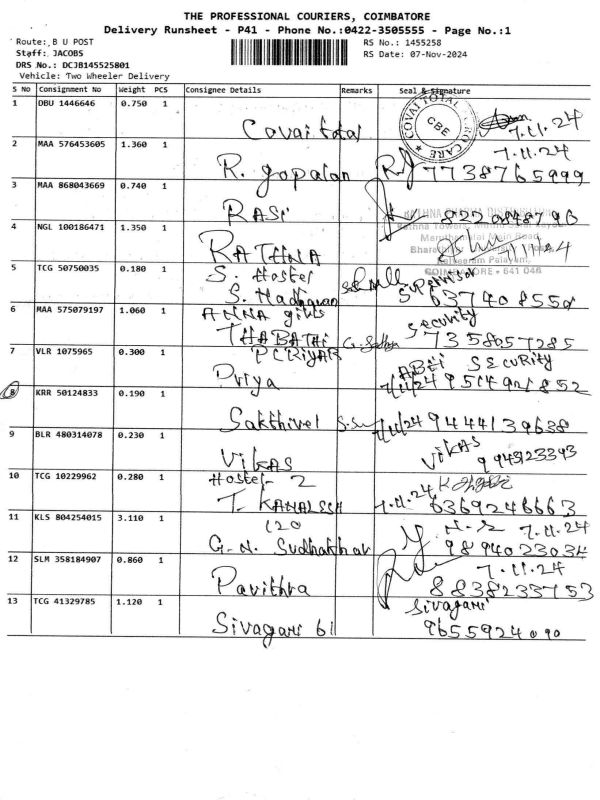 THE PROFESSIONAL COURIERS, COIMBATORE
Delivery Runsheet - P41 - Phone No.:0422-3505555 - Page No.:1
Route: B U POST
Staff: JACOBS
DRS No.: DCJB145525801
Vehicle: Two Wheeler Delivery
RS No.: 1455258
RS Date: 07-Nov-2024
S No Consignment No Weight PCS Consignee Details Remarks Seal & Signature
1 DBU 1446646 0.750 1
COVAI TOTAL
CBE
Covai total 7.11.24
2 MAA 576453605 1.360 1 7.11.24
R. gopalan 7738765999
3 MAA 868043669 0.740 1
RASi 8220848796
4 NGL 100186471 1.350 1
RATHNA
Main Road,
COIMBATORE - 641 046
5 TCG 50750035 0.180 1
S. Hostel
S. 637408550
6 MAA 575079197 1.060 1
ANNA girls security
THABATHI 7358057285
7 VLR 1075965 0.300 1
PERIYAR SECURITY
Priya 7/11/24
8 KRR 50124833 0.190 1
Sakthivel 7/11/24 9444139638
9 BLR 480314078 0.230 1
VIKAS VIKAS
10 TCG 10229962 0.280 1
Hostel - 2 7.11.24
T. 6369246663
11 KLS 804254015 3.110 1
120 7.11.24
G.N. 9894023034
12 SLM 358184907 0.860 1 7.11.24
Pavithra 8838233753
13 TCG 41329785 1.120 1 Sivagami
Sivagami 61 9655924090